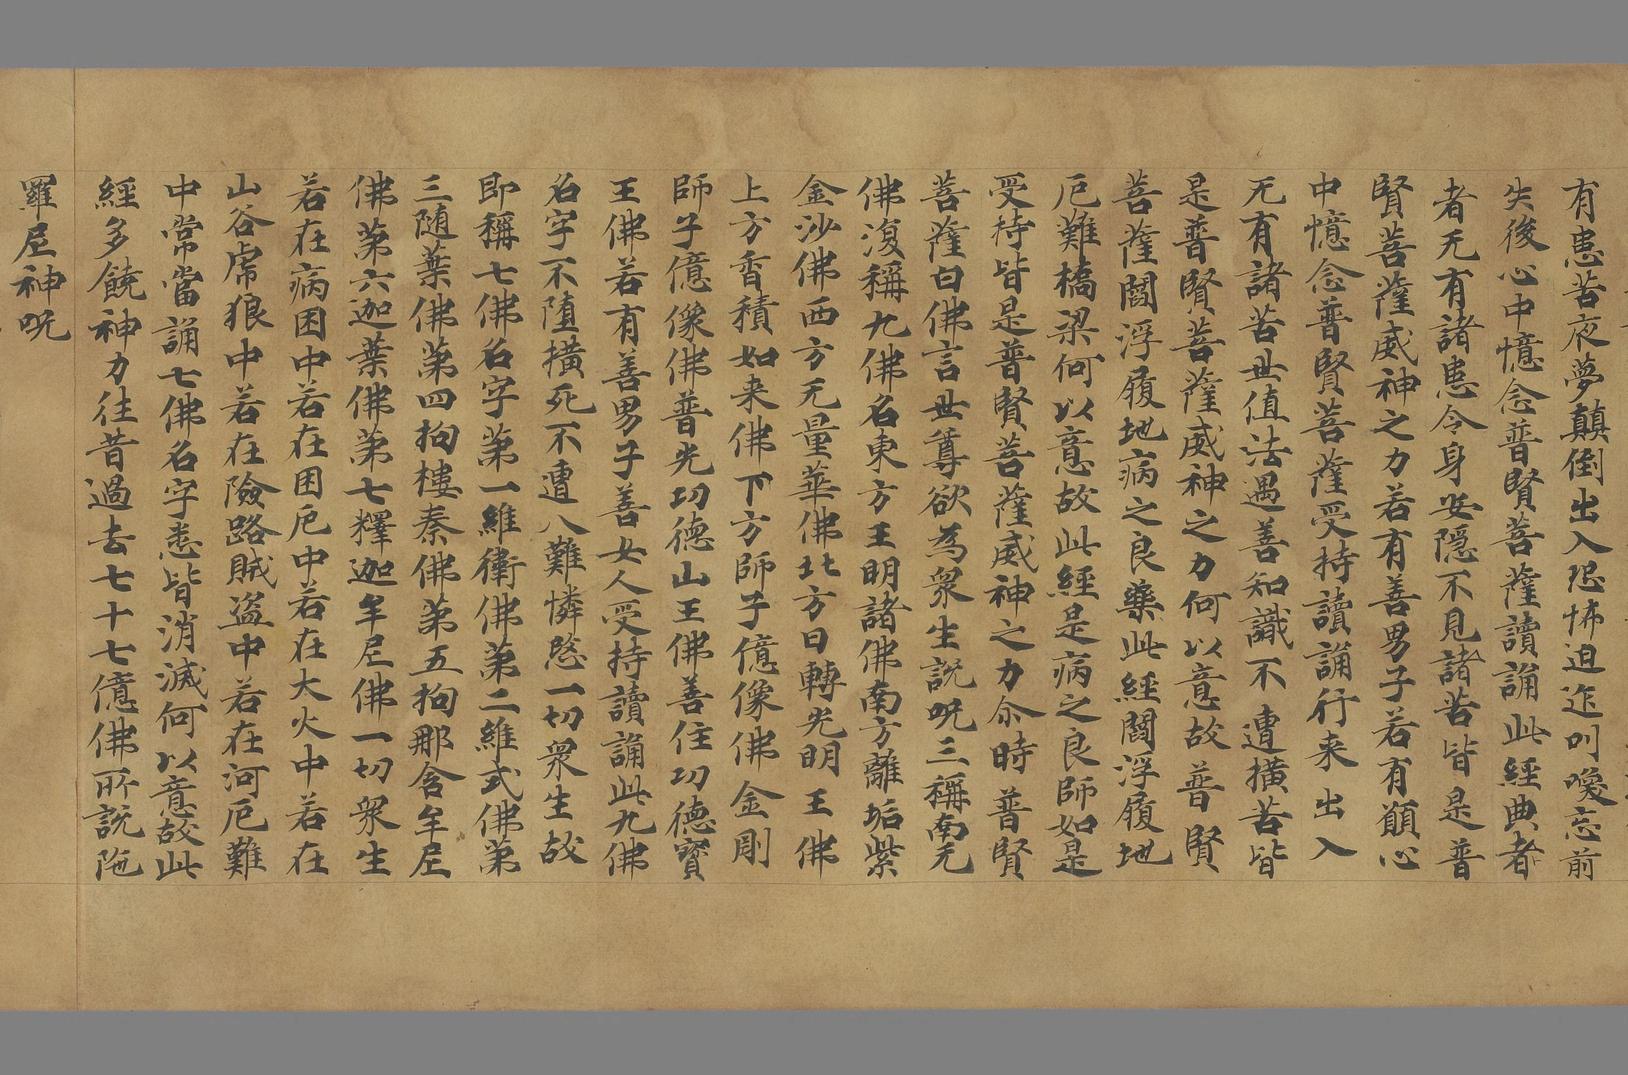 有患苦夜夢顛倒出入恐怖迫迮叫喚忘前
失後心中憶念普賢菩薩讀誦此經典者
者无有諸患令身安隱不見諸苦皆是普
賢菩薩威神之力若有善男子若有願心
中憶念普賢菩薩受持讀誦行来出入
无有諸苦世值法遇善知識不遭橫苦皆
是普賢菩薩威神之力何以意故普賢
菩薩閻浮履地病之良藥此經閻浮履地
厄難橋梁何以意故此經是病之良師如是
受持皆是普賢菩薩威神之力尒時普賢
菩薩白佛言世尊欲為衆生說呪三稱南无
佛復稱九佛名東方王明諸佛南方離垢紫
金沙佛西方无量華佛北方日轉光明王佛
上方香積如来佛下方師子億像佛金剛
師子億像佛普光切德山王佛善住切德寳
王佛若有善男子善女人受持讀誦此九佛
名字不墮橫死不遭八難憐愍一切衆生故
即稱七佛名字第一維衛佛第二維式佛第
三随葉佛第四拘樓秦佛第五拘那含牟尼
佛第六迦葉佛第七釋迦牟尼佛一切衆生
若在病困中若在困厄中若在大火中若在
山谷虎狼中若在險路賊盗中若在河厄難
中常當誦七佛名字悉皆消滅何以意故此
經多饒神力往昔過去七十七億佛所說陁
羅尼神呪